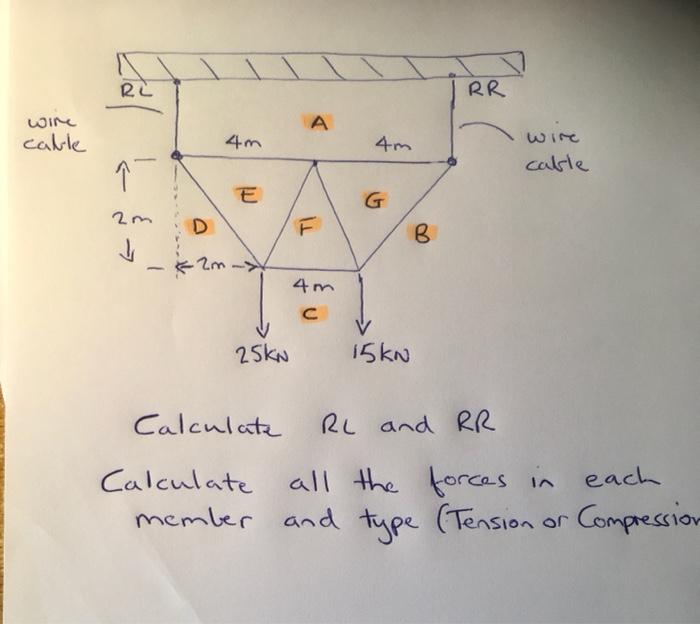 RL
RR
wire
cable
A
4m
4m
wire
cable
E
G
2m
D
F
B
2m
4m
C
25kN
15kN
Calculate RL and RR
Calculate all the forces in each
member and type (Tension or Compression